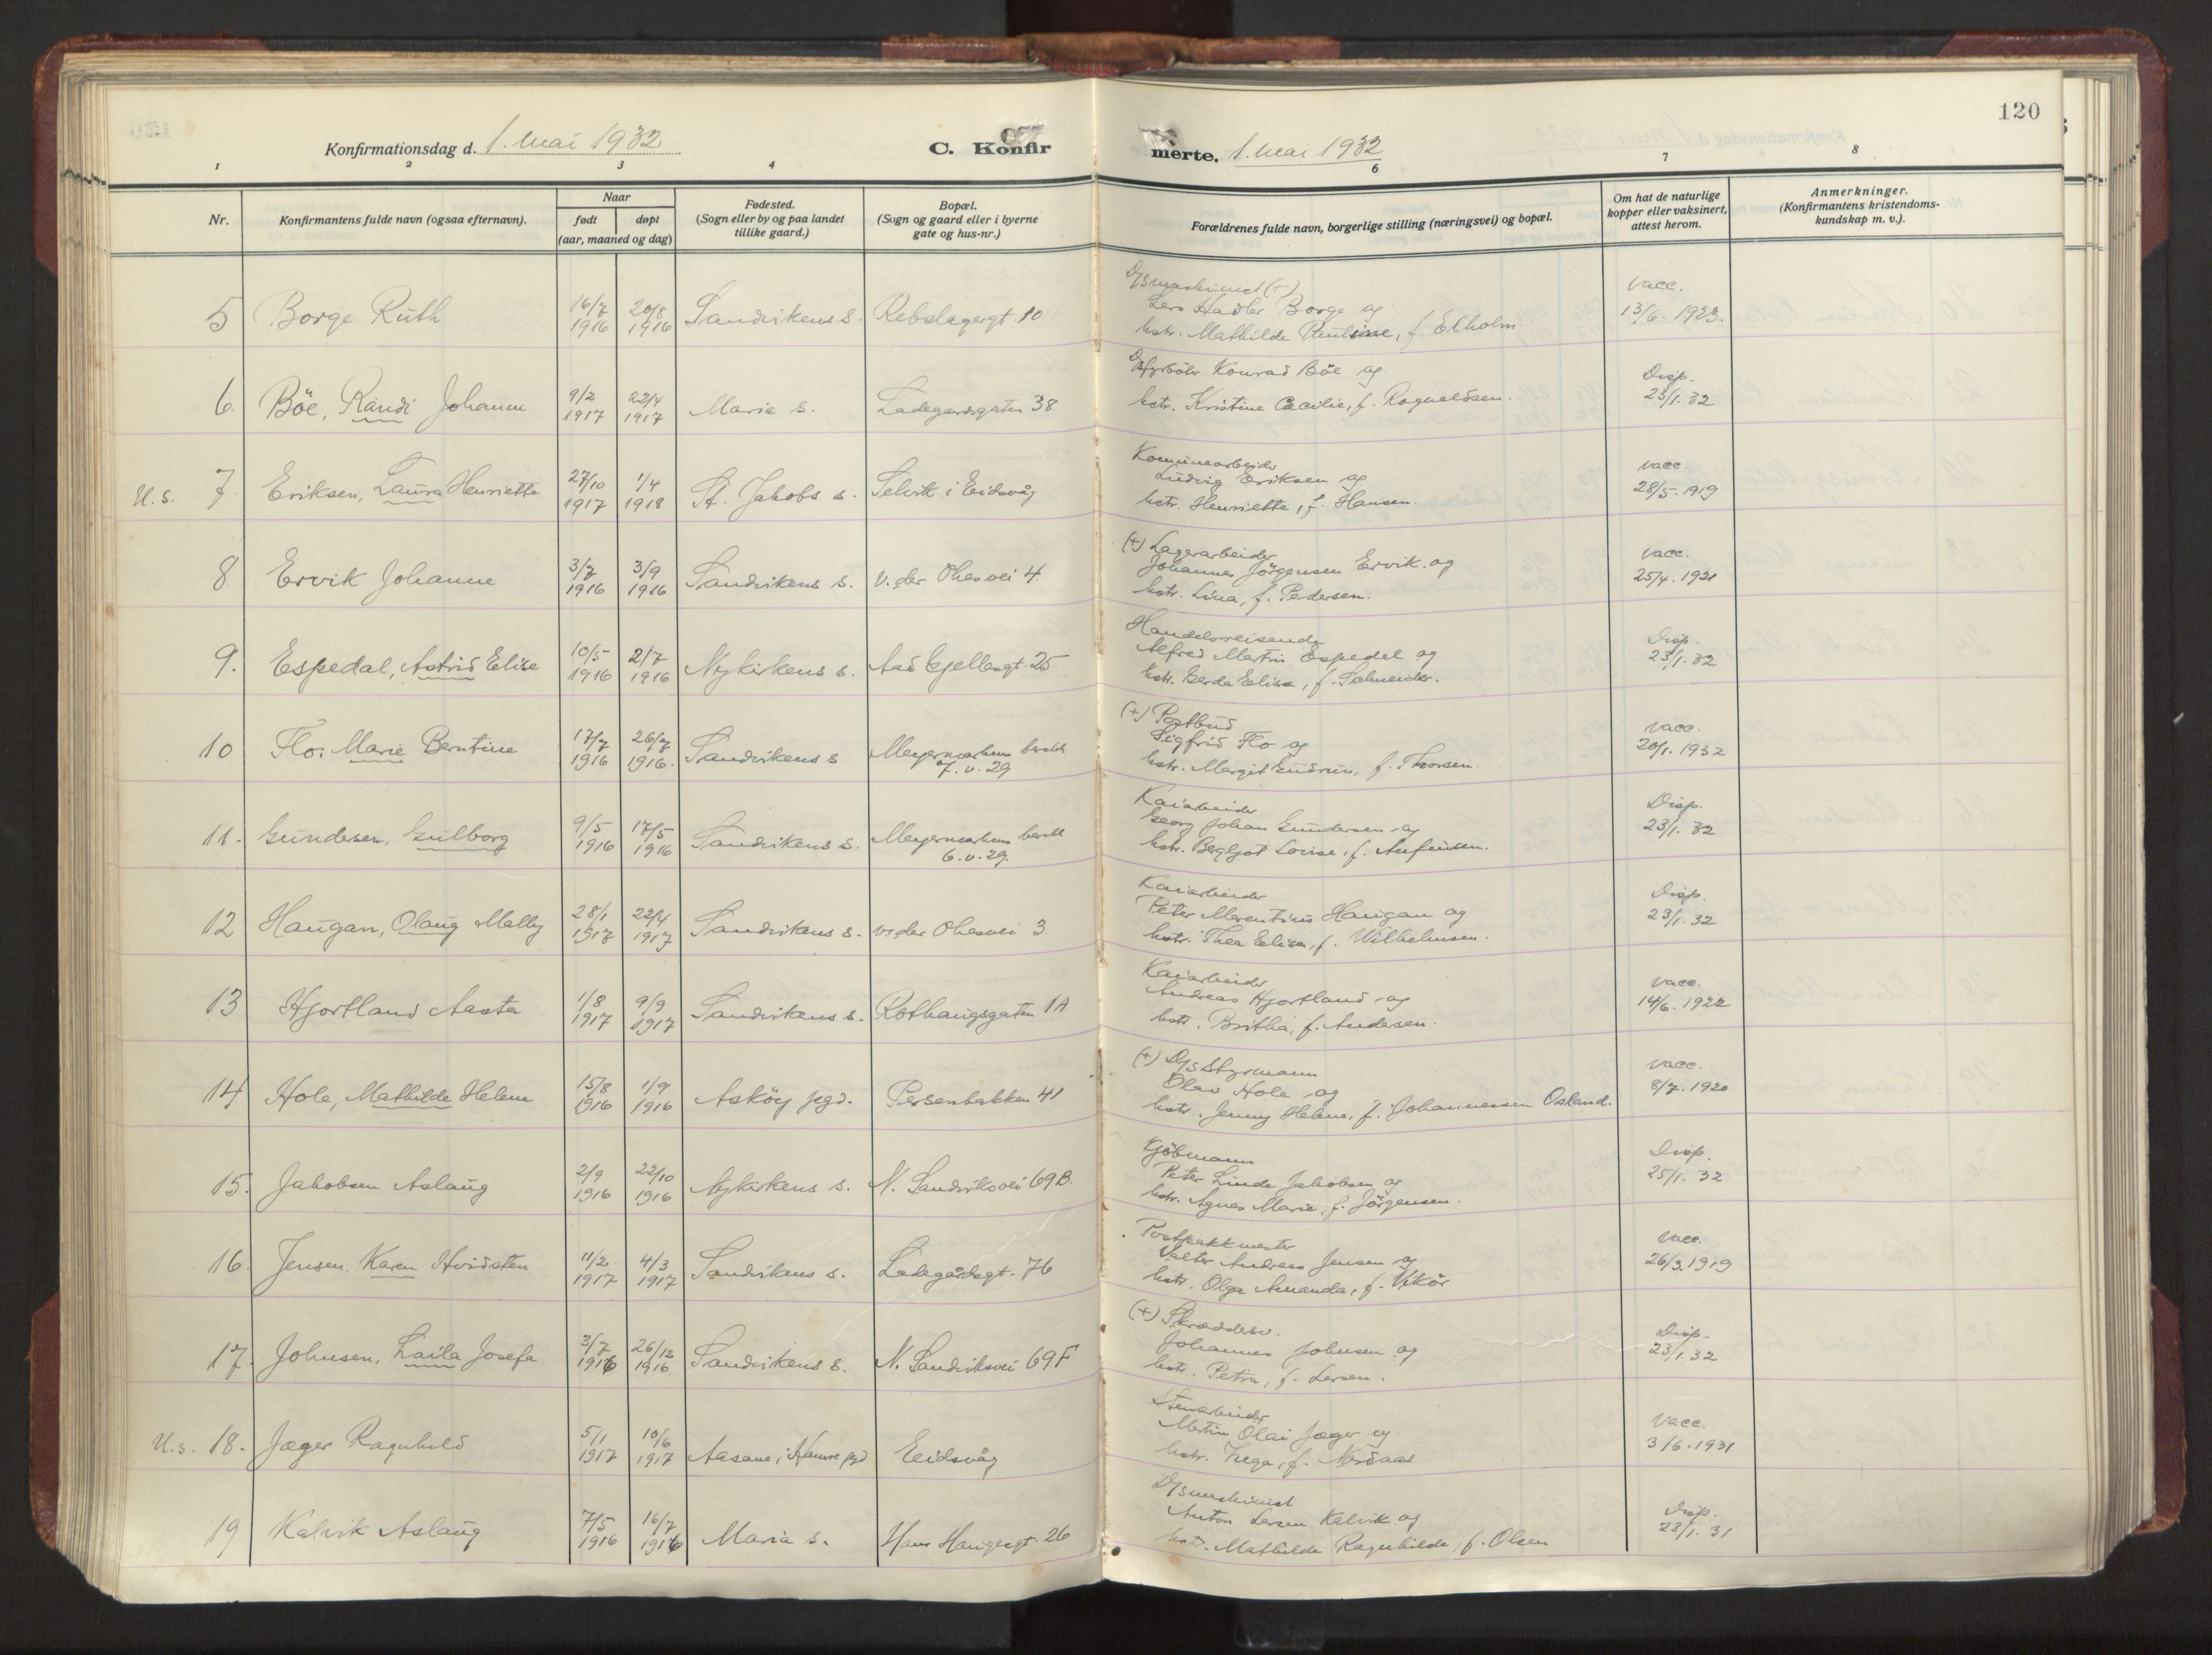 120
Konfirmationsdag d. 1. mai 1932
C. Konfir
merte. 1. mai 1932
1 2 3 4 6 7 8
Nr.
Konfirmantens fulde navn (ogsaa efternavn).
Naar
født døpt
(aar, maaned og dag)
Fødested.
(Sogn eller by og paa landet
tillike gaard.)
Bopæl.
(Sogn og gaard eller i byerne
gate og hus-nr.)
Forældrenes fulde navn, borgerlige stilling (næringsvei) og bopæl.
Om hat de naturlige
kopper eller vaksinert,
attest herom.
Anmerkninger.
(Konfirmantens kristendoms-
kundskap m. v.).
5 Borge Ruth 16/7 1916 20/8 1916 Sandvikens s. Rebslagergt 10
D/smaskinist (+)
Lars Hadler Borge og
hstr. Mathilde Pauline, f. Elholm
vacc.
13/6. 1923.
6. Böe, Randi Johanne 9/2 1917 22/4 1917 Maria s. Ladegardsgaten 38
Konrad Böe og
hstr. Kristine Cecilie, f. Rognaldsen.
Disp.
23/1. 32
U. s. 7. Eriksen, Laura Henriette 27/10 1917 1/4 1918 St. Jakobs s. Selvik i Eidsvåg
Kommunearbeider
Ludvig Eriksen og
hstr. Henriette, f. Hansen.
vacc.
28/5. 1919
8. Ervik Johanne 3/7 1916 3/9 1916 Sandvikens s. v. der Ohesvei 4.
(+) Lagerarbeider
Johannes Jörgensen Ervik. og
hstr. Lina, f. Pedersen.
vacc.
25/4. 1921
9. Espedal, Astrid Elise 10/5 1916 2/7 1916 Nykirkens s. Aad Gjellesgt. 25
Handelsreisende
Alfred Martin Espedal og
hstr. Gerda Elisa, f. Schneider.
Disp.
23/1. 32
10 Flo. Marie Berntine 17/7 1916 26/7 1916. Sandvikens s
7. v. 29
(+) Postbud
Sigfrid Flo og
hstr. Margit Gudrun, f. Thorsen.
vacc.
20/1. 1932
11. Gundersen, Gulborg 9/5 1916 17/5 1916 Sandvikens s.
6. v. 29.
Kaiarbeider
Georg Johan Gundersen og
hstr. Bergljot Lovise, f. Anfinsen.
Disp.
23/1. 32
12 Haugan, Olaug Malby 28/1 1917 22/4 1917 Sandvikens s. v. der Ohesvei 3.
Kaiarbeider
Peter Merentius Haugan og
hstr. Thea Elisa, f. Wilhelmsen.
Disp.
23/1. 32
13 Hjortland Aasta 1/8 1917 9/9 1917 Sandvikens s. Rothaugsgaten 1A
Kaiarbeider
Andreas Hjortland og
hstr. Britha, f. Andersen.
vacc.
14/6. 1922
14 Hole, Mathilde Helene 15/8 1916 1/9 1916 Asköy pgd. Persenbakken 41
(+) D/s Styrmann
Olav Hole og
hstr. Jenny Helene, f. Johannessen Osland.
vacc.
8/7. 1920
15. Jakobsen Aslaug 2/9 1916 22/10 1916 Nykirkens s. N. Sandviksvei 69B.
Kjöbmann
Peter Linde Jakobsen og
hstr. Agnes Marie, f. Jörgensen.
Disp.
25/1. 32
16. Jensen, Karen Hvidsten 11/2 1917 4/3 1917 Sandvikens s. Ladegårdsgt. 76
Postpakkmester
Valter Andreas Jensen og
hstr. Olga Amanda, f. Vikör
vacc.
26/3. 1919
17. Johnsen, Laila Josefa 3/7 1916 26/12 1916 Sandvikens s. N. Sandviksvei 69F
(+) Skræddersv.
Johannes Johnsen og
hstr. Petra, f. Larsen.
Disp.
23/1. 32
U. s. 18. Jæger Ragnhild 5/1 1917 10/6 1917 Aasane i Hamre pgd Eidsvåg
Stenarbeider
Martin Olai Jæger og
hstr. Inga, f. Nordaas
vacc.
3/6. 1931
19 Kalvik Aslaug 7/5 1916 16/7 1916 Maria s. Hans Haugesgt. 26
D/smaskinist
Anton Larsen Kalvik og
hstr. Mathilde Ragnhilde, f. Olsen
Disp.
28/1. 31